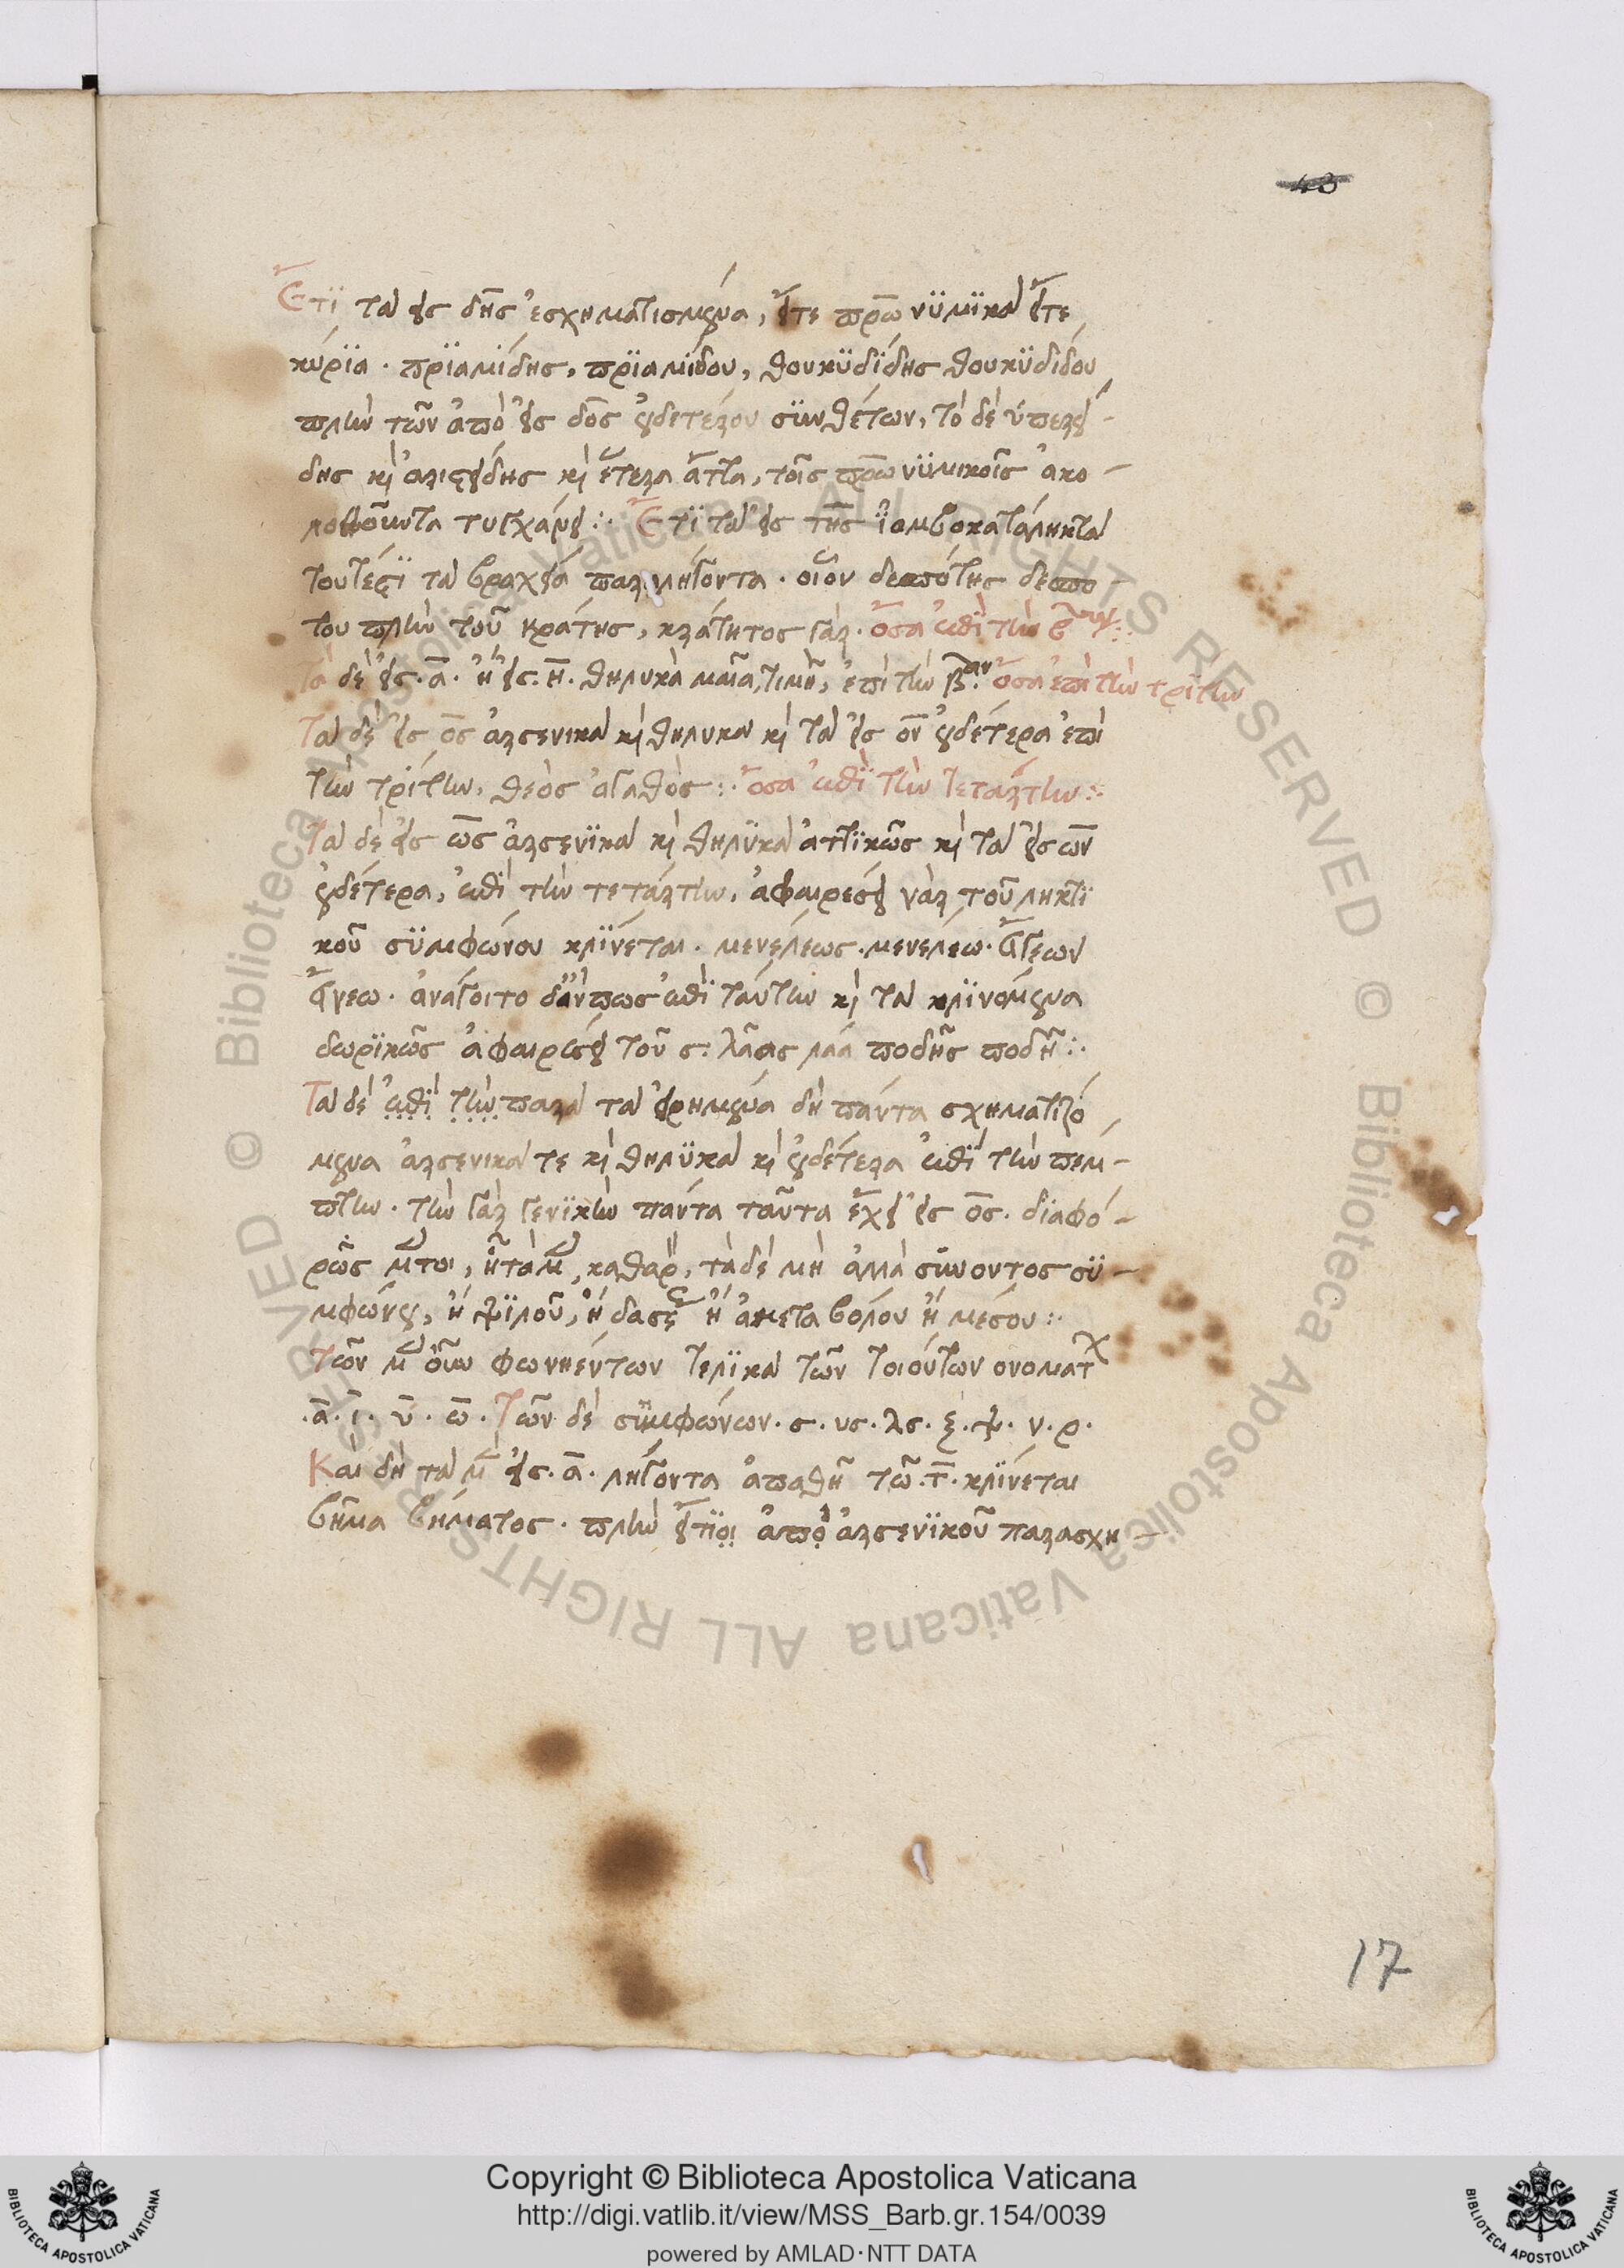 48
Ἔτϊ τὰ εἰς δης ἐσχηματισμένα, εἴτε πρωνϋμϊκὰ εἴτε
κύρϊα · πρϊαμίδης, πρϊαμίδου, θουκϋδίδης θουκϋδίδου
πλὴν τῶν ἀπὸ εἰς δος οὐδετέρου σϋνθέτων, τὸ δὲ ὑπερεί-
δης καὶ ἀριστείδης καὶ ἕτερα ἄττα, τοῖς πρωνϋμικοῖς ἀκο-
λουθοῦντα τυγχάνει : · Ἔτϊ τὰ εἰς της ϊαμβοκατάληκτα
τουτέστϊ τὰ βραχεία παραλήγοντα · οἷον δεσπότης δεσπο-
του πλὴν τοῦ κράτης, κράτητος γάρ · ὅσα ἐπὶ τὴν
Τὰ δὲ εἰς · α · ἢ εἰς · η · θηλυκὰ μαῖα, τιμὴ, ἐπὶ τὴν βαν · ὅσα ἐπὶ τὴν τρίτην
Τὰ δὲ εἰς ος ἀρσενικὰ καὶ θηλυκὰ καὶ τὰ εἰς ον οὐδέτερα ἐπὶ
τὴν τρίτην, θεὸς ἀγαθὸς : · ὅσα ἐπὶ τὴν τετάρτην : ·
Τὰ δὲ εἰς ως ἀρσενϊκὰ καὶ θηλϋκὰ ἀττϊκῶς καὶ τὰ εἰς ων
οὐδέτερα, ἐπὶ τὴν τετάρτην, ἀφαιρέσει γὰρ τοῦ ληκτϊ
κοῦ σϋμφώνου κλϊνέται · μενελέως · μενελέω · ἄγεων
ἄγεω · ἀνάγοιτο δἄν πως ἐπὶ ταύτην καὶ τὰ κλϊνομένα
δωρϊκῶς ἀφαιρέσει τοῦ ς : λᾶας λάα ποδῆς ποδῆ : ·
Τὰ δὲ ἐπὶ τὴν παρὰ τὰ εἰρημένα δὴ πάντα σχηματιζό
μενα ἀρσενικά τε καὶ θηλϋκὰ καὶ οὐδέτερα ἐπὶ τὴν πέμ-
πτην · τὴν γὰρ γενϊκὴν πάντα ταῦτα ἔχει εἰς ος · διαφό-
ρως μέντοι, ἢ τὰ μὲν καθαρ, τὰ δὲ μὴ ἀλλὰ σϋνοντος σϋ-
μφώνου, ἢ ψϊλοῦ, ἢ δασέος ἢ ἀμεταβόλου ἢ μέσου :
Τῶν μὲν οὖν φωνηέντων τελϊκὰ τῶν τοιούτων ονοματ
· α · ι · υ · ω · Τῶν δὲ σϋμφώνων · ς · νς · λς · ξ · ψ · ν · ρ ·
Καὶ δὴ τὰ μὲν εἰς · α · λήγοντα ἐπαθῆ τῶ · τ · κλϊνέται
βῆμα βήματος · πλὴν εἴτϊοι ἀπὸ ἀρσενϊκοῦ παρασχη-
17
Copyright © Biblioteca Apostolica Vaticana
http://digi.vatlib.it/view/MSS_Barb.gr.154/0039
powered by AMLAD·NTT DATA